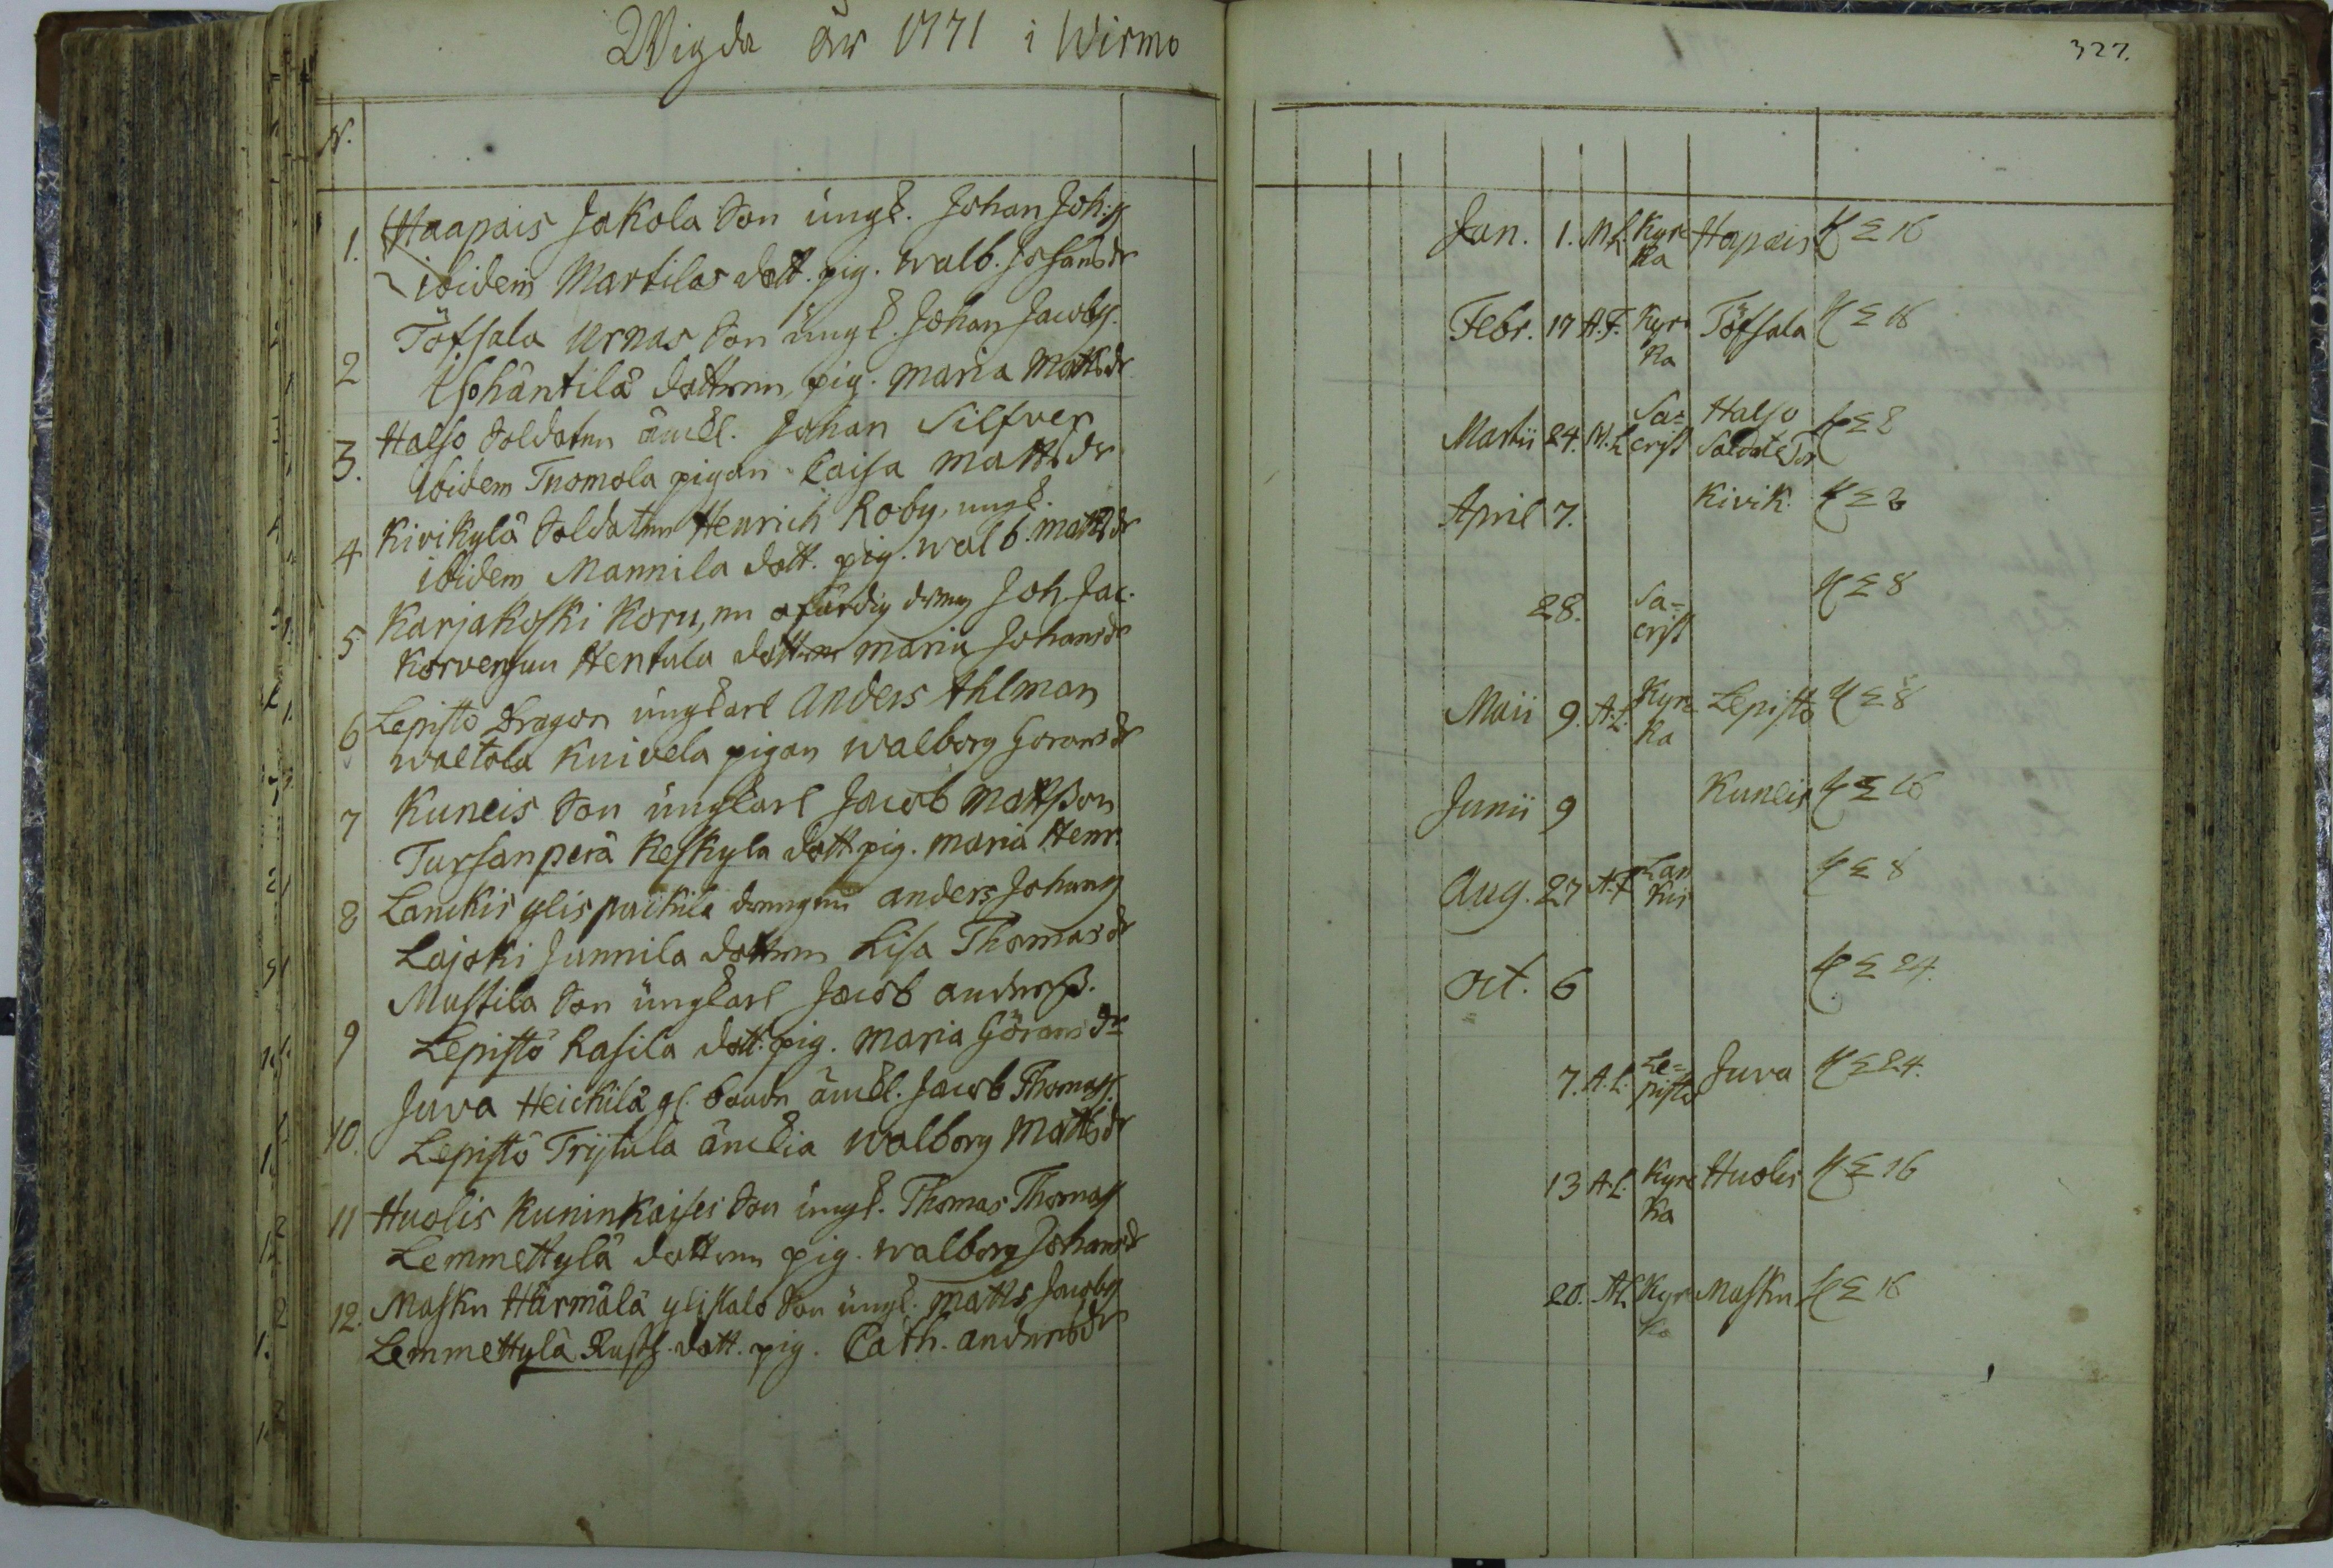 Wigda år 1771 i Wirmo
327.
N.
1. Haapais Jakola Son ungk. Johan Joh:ss
ibidem Martilas dott. pig. Walb. Johansdr
2 Töfsala Urnas Son ungk. Johan Jacobss.
Isohäntilä dottren pig. Maria Mattsdr
3. Halso Soldaten änkl. Johan Silfver
ibidem Tuomola pigan Caisa Mattsdr
4 Kivikylä Soldaten Henrich Roby, ungk.
ibidem Mannila dott. pig. Walb. Mattsdr
5 Karjakoski Koru, en ofärdig dreng Joh. Jac.
Korvensuu Hentula dottren Maria Johansdr
6 Lepistö Dragon ungkarl Anders Ahlman
Waltola Knivela pigan Walborg Göransdr
7 Kuneis Son ungkarl Jacob Mattsson
Tursanperä Keskyla dott. pig. Maria Henr.
8 Lanckis ylispaitula drengen Anders Johanss
Lajoki Junnila dottren Lisa Thomasdr
9 Mustila Son ungkarl Jacob Anderss.
Lepistö Rasila dott. pig. Maria Göransdr
10. Juva Heickilä gl. bonde änkl. Jacob Thomass.
Lepistö Trijtula änckia Walborg Mattsdr
11 Huolis Kuninkaises Son ungk. Thomas Thomass
Lemmettylä dottren pig. Walborg Johansdr
12. Masku Härmälä ylistalo Son ungk. Matts Jacobss
Lemmettylä Rusth. dott. pig. Cath. Andersdr
Jan. 1. M.L. Kyrc Hapais Σ 16
ka
Febr. 17 A.F. Kyrc Töfsala Σ 16
ka
Martii 24. M.L Sa= Halso Σ 8
crist Soldate Tor
April 7. Kivik. Σ 8
28. Sa= Σ 8
crist
Maii 9. A.L. Kyrc Lepistö Σ 8
ka
Junii 9 Kuneis Σ 16
Aug. 27 A.F Lan Σ 8
kis
Oct. 6 Σ 24.
7. A.L. Le= Juva Σ 24.
pistö
13 A.L. Kyrc Huolis Σ 16
ka
20. A.L. Kyr Masku Σ 16
ka